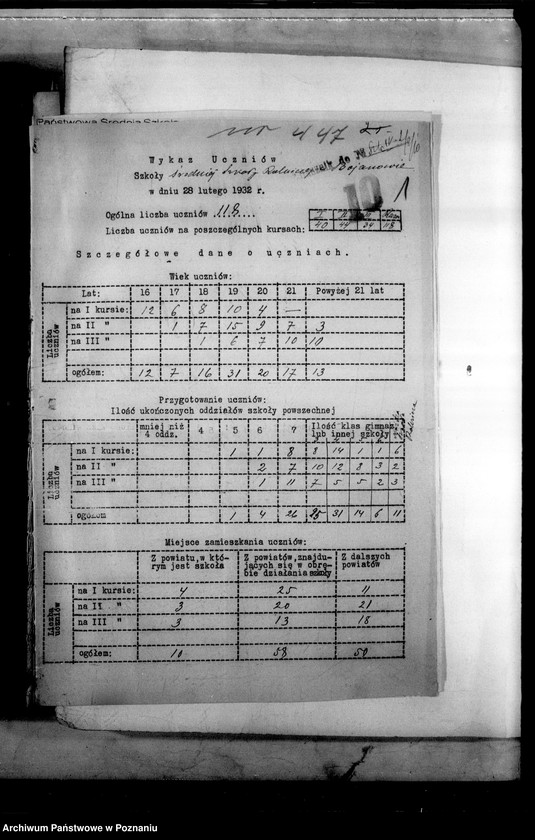 Państwowa Średnia Szkoła
nr 447
Wykaz Uczniów
Szkoły Średniej Szkoły Rolniczej w Bojanowie
w dniu 28 lutego 1932 r.
10
1
Ogólna liczba uczniów 118....
I II III Raz.
Liczba uczniów na poszczególnych kursach: 40 44 34 118
Szczegółowe dane o uczniach.
Wiek uczniów:
Lat: 16 17 18 19 20 21 Powyżej 21 lat
Liczba uczniów
na I kursie: 12 6 8 10 4 —
na II " 1 7 15 9 7 3
na III " 1 6 7 10 10
ogółem: 12 7 16 31 20 17 13
Przygotowanie uczniów:
Ilość ukończonych oddziałów szkoły powszechnej
mniej niż 4 oddz. 4 5 6 7 Ilość klas gimnaz. lub innej szkoły
Liczba uczniów
na I kursie: 1 1 8 8 14 1 1 6
na II " 2 7 10 12 8 3 2
na III " 1 11 7 5 5 2 3
ogółem 1 4 26 25 31 14 6 11
Miejsce zamieszkania uczniów:
Z powiatu, w którym jest szkoła
Z powiatów, znajdujących się w obrębie działania szkoły
Z dalszych powiatów
Liczba uczniów
na I kursie: 4 25 11
na II " 3 20 21
na III " 3 13 18
ogółem: 10 58 50
Archiwum Państwowe w Poznaniu